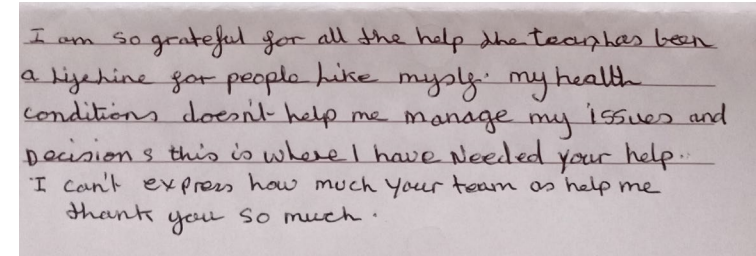 I am so grateful for all the help the team has been
a lifeline for people like myself. my health
conditions doesn't help me manage my issues and
Decisions this is where I have Needed your help..
I can't express how much your team as help me
thank you so much.